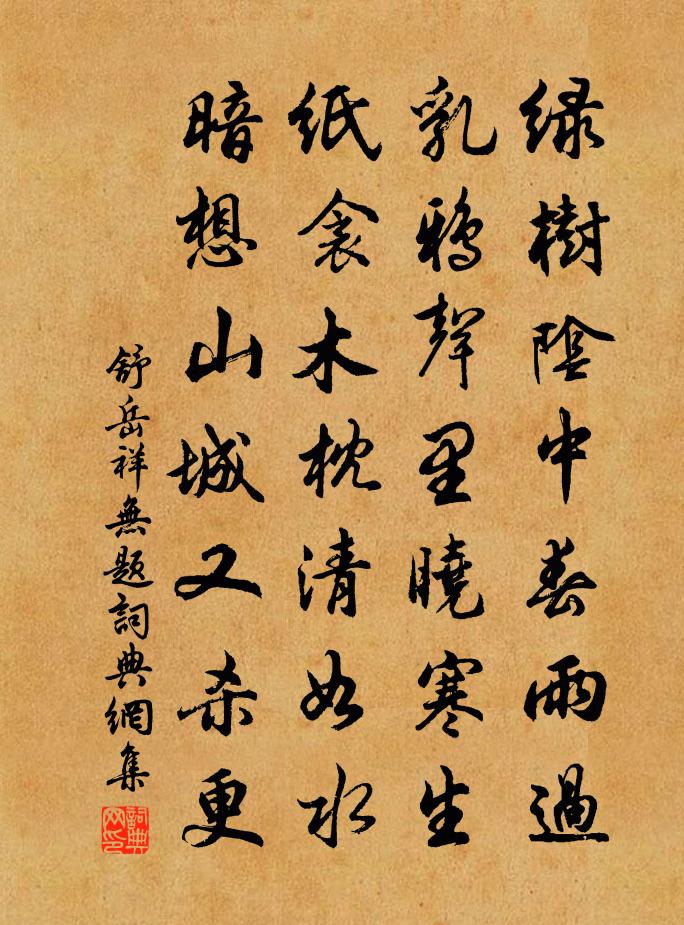 绿樹陰中春雨過
乳鴉聲里曉寒生
紙衾木枕清如水
暗想山城又杀更
舒岳祥無題詞典網集
詞典网印